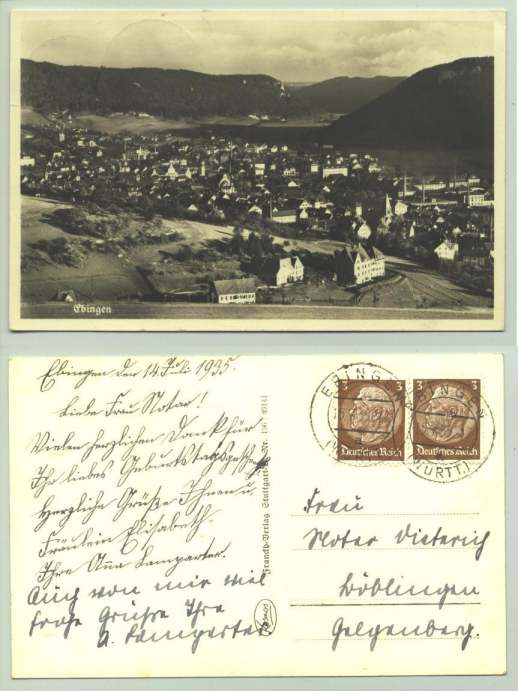 Ebingen
Ebingen den 14. Juli 1935.
Liebe Frau Notar!
Vielen herzlichen Dank für
Ihr liebes Geburtstags
Herzliche Grüße Ihnen u.
Fräulein Elisabeth.
Ihre Anna Lamparter.
Auch von mir viel
frohe Grüße Ihre
A. Lamparter
Franckh-Verlag Stuttgart
EBINGEN
(WÜRTT.)
3
Deutsches Reich
3
Deutsches Reich
EBINGEN
(WÜRTT.)
Frau
Notar Dieterich
Böblingen
Galgenberg.